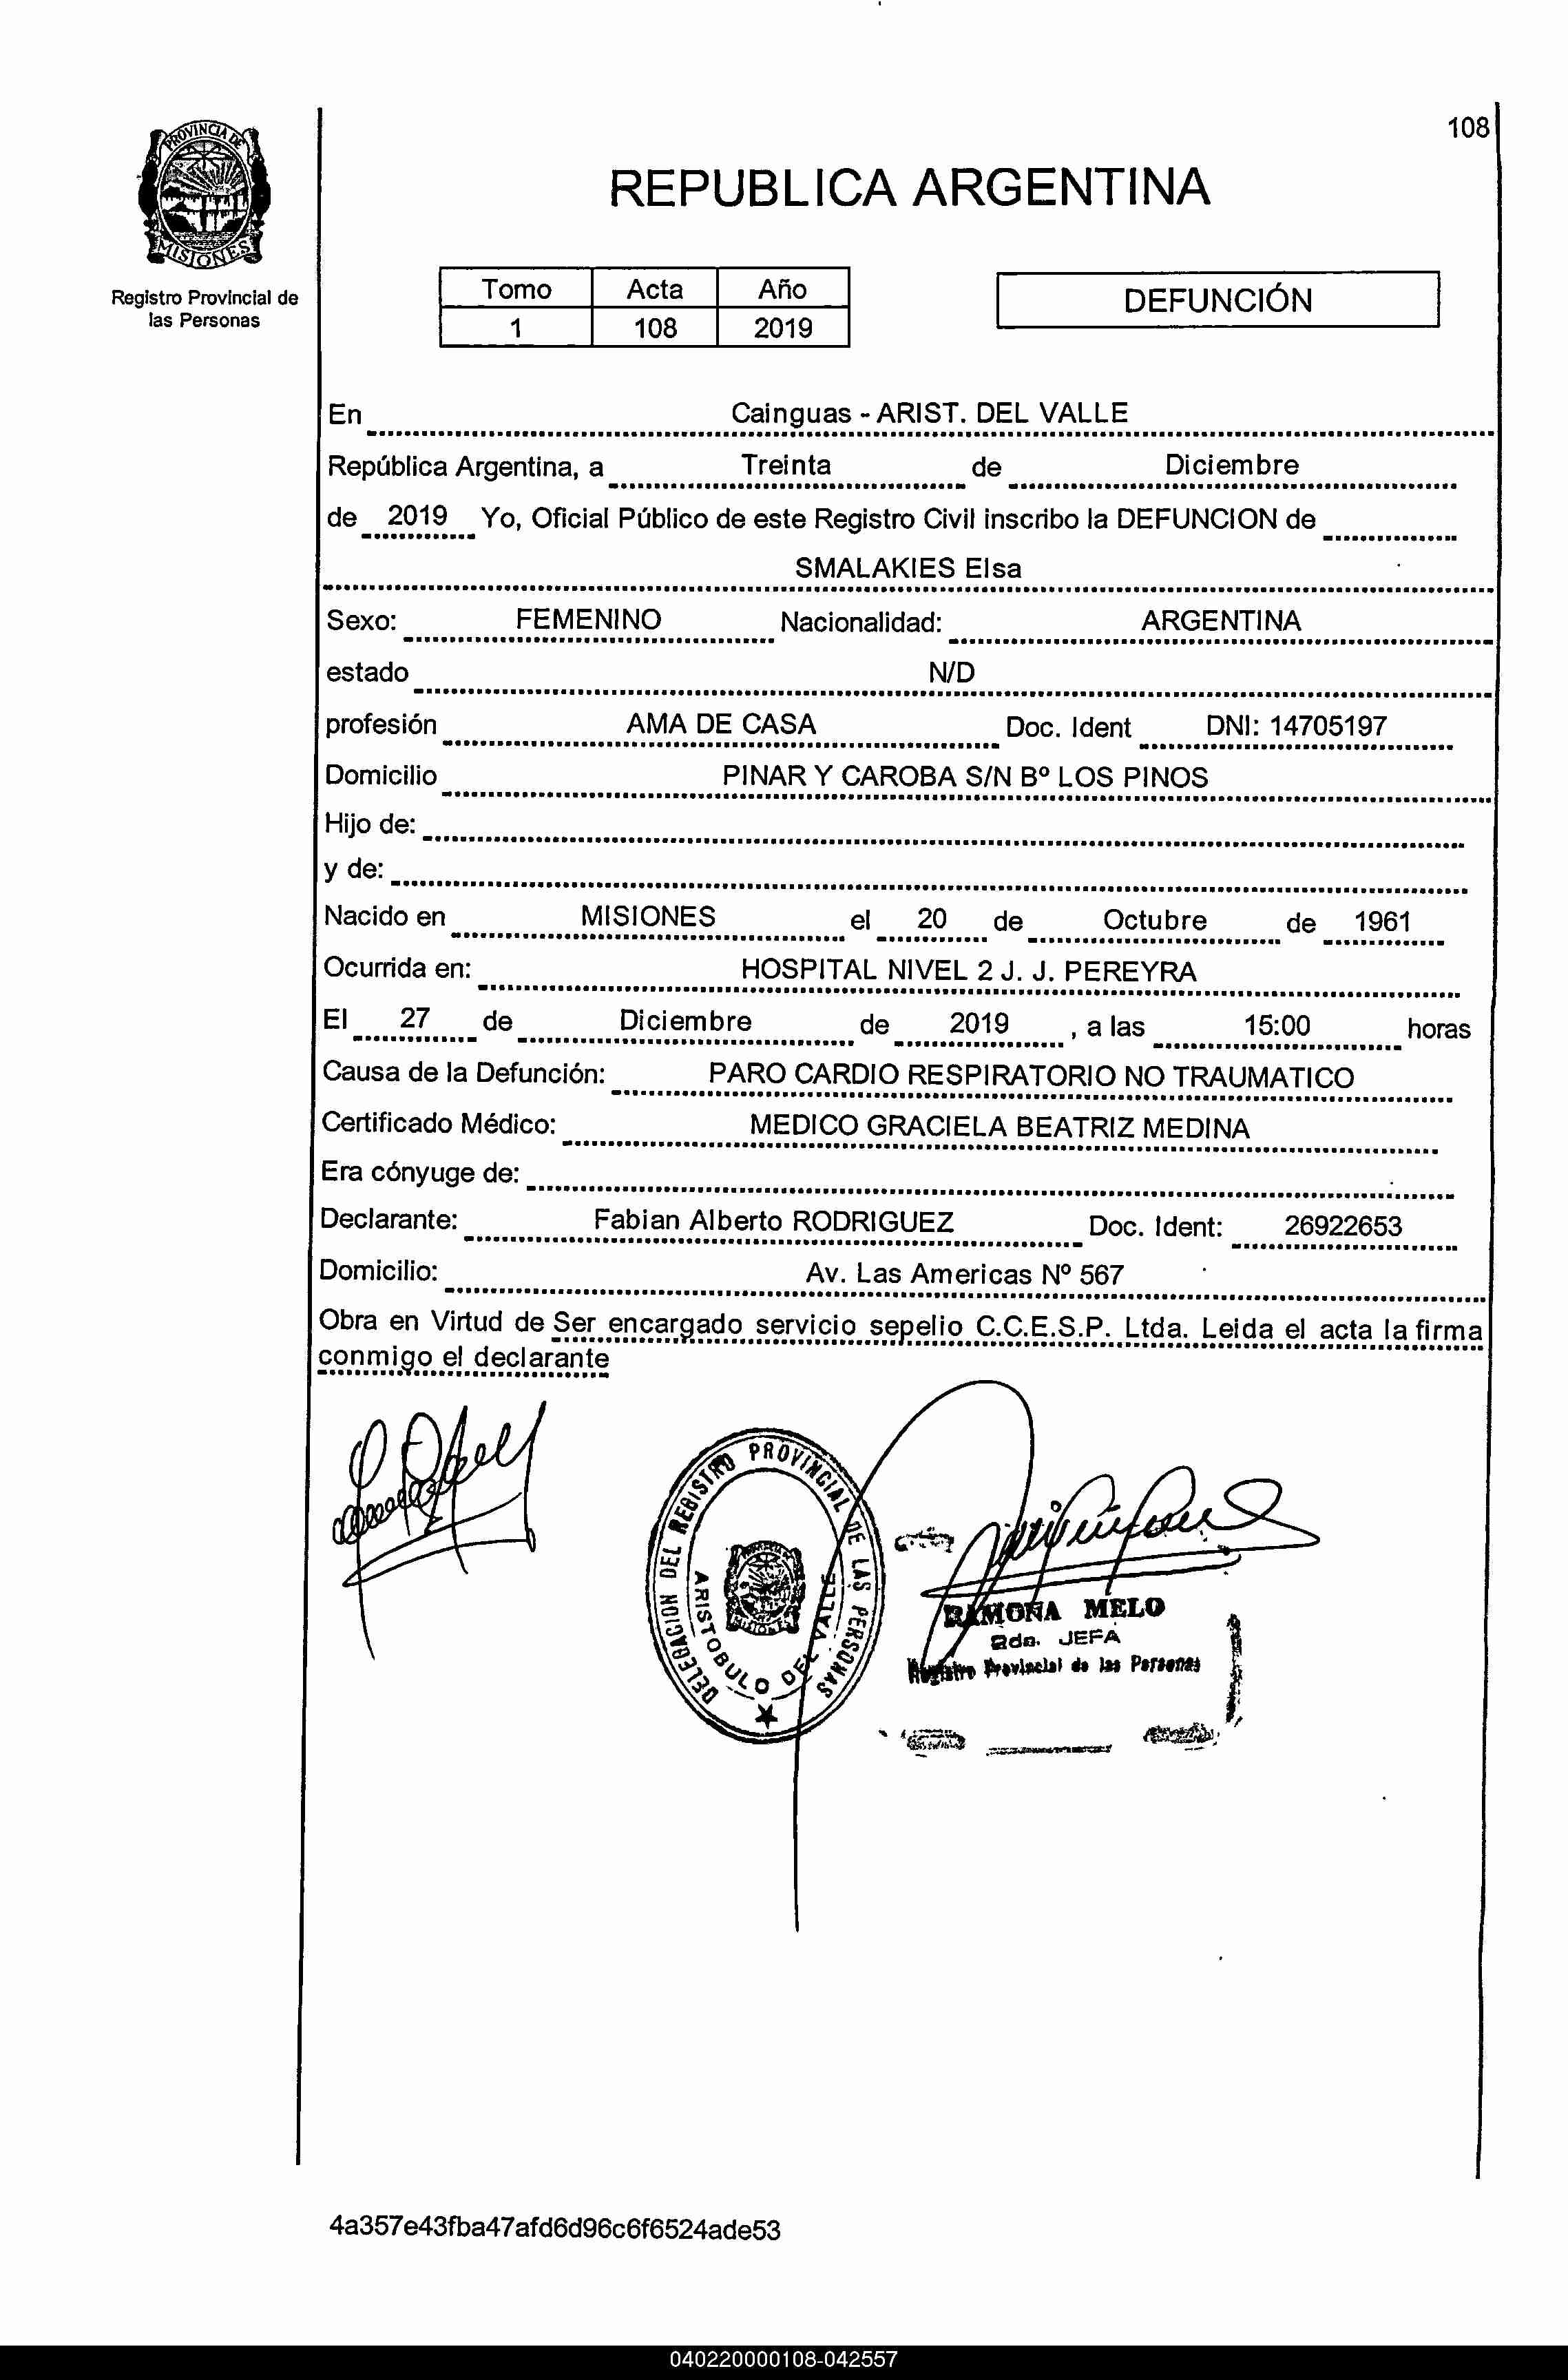 108
PROVINCIA DE
MISIONES
Registro Provincial de
las Personas
REPUBLICA ARGENTINA
Tomo Acta Año
1 108 2019
DEFUNCIÓN
En Cainguas - ARIST. DEL VALLE
República Argentina, a Treinta de Diciembre
de 2019 Yo, Oficial Público de este Registro Civil inscribo la DEFUNCION de
SMALAKIES Elsa
Sexo: FEMENINO Nacionalidad: ARGENTINA
estado N/D
profesión AMA DE CASA Doc. Ident DNI: 14705197
Domicilio PINAR Y CAROBA S/N Bº LOS PINOS
Hijo de:
y de:
Nacido en MISIONES el 20 de Octubre de 1961
Ocurrida en: HOSPITAL NIVEL 2 J. J. PEREYRA
El 27 de Diciembre de 2019 , a las 15:00 horas
Causa de la Defunción: PARO CARDIO RESPIRATORIO NO TRAUMATICO
Certificado Médico: MEDICO GRACIELA BEATRIZ MEDINA
Era cónyuge de:
Declarante: Fabian Alberto RODRIGUEZ Doc. Ident: 26922653
Domicilio: Av. Las Americas Nº 567
Obra en Virtud de Ser encargado servicio sepelio C.C.E.S.P. Ltda. Leida el acta la firma
conmigo el declarante
DELEGACION DEL REGISTRO PROVINCIAL DE LAS PERSONAS
ARISTOBULO DEL VALLE
RAMONA MELO
JEFA
Registro Provincial de las Personas
4a357e43fba47afd6d96c6f6524ade53
040220000108-042557